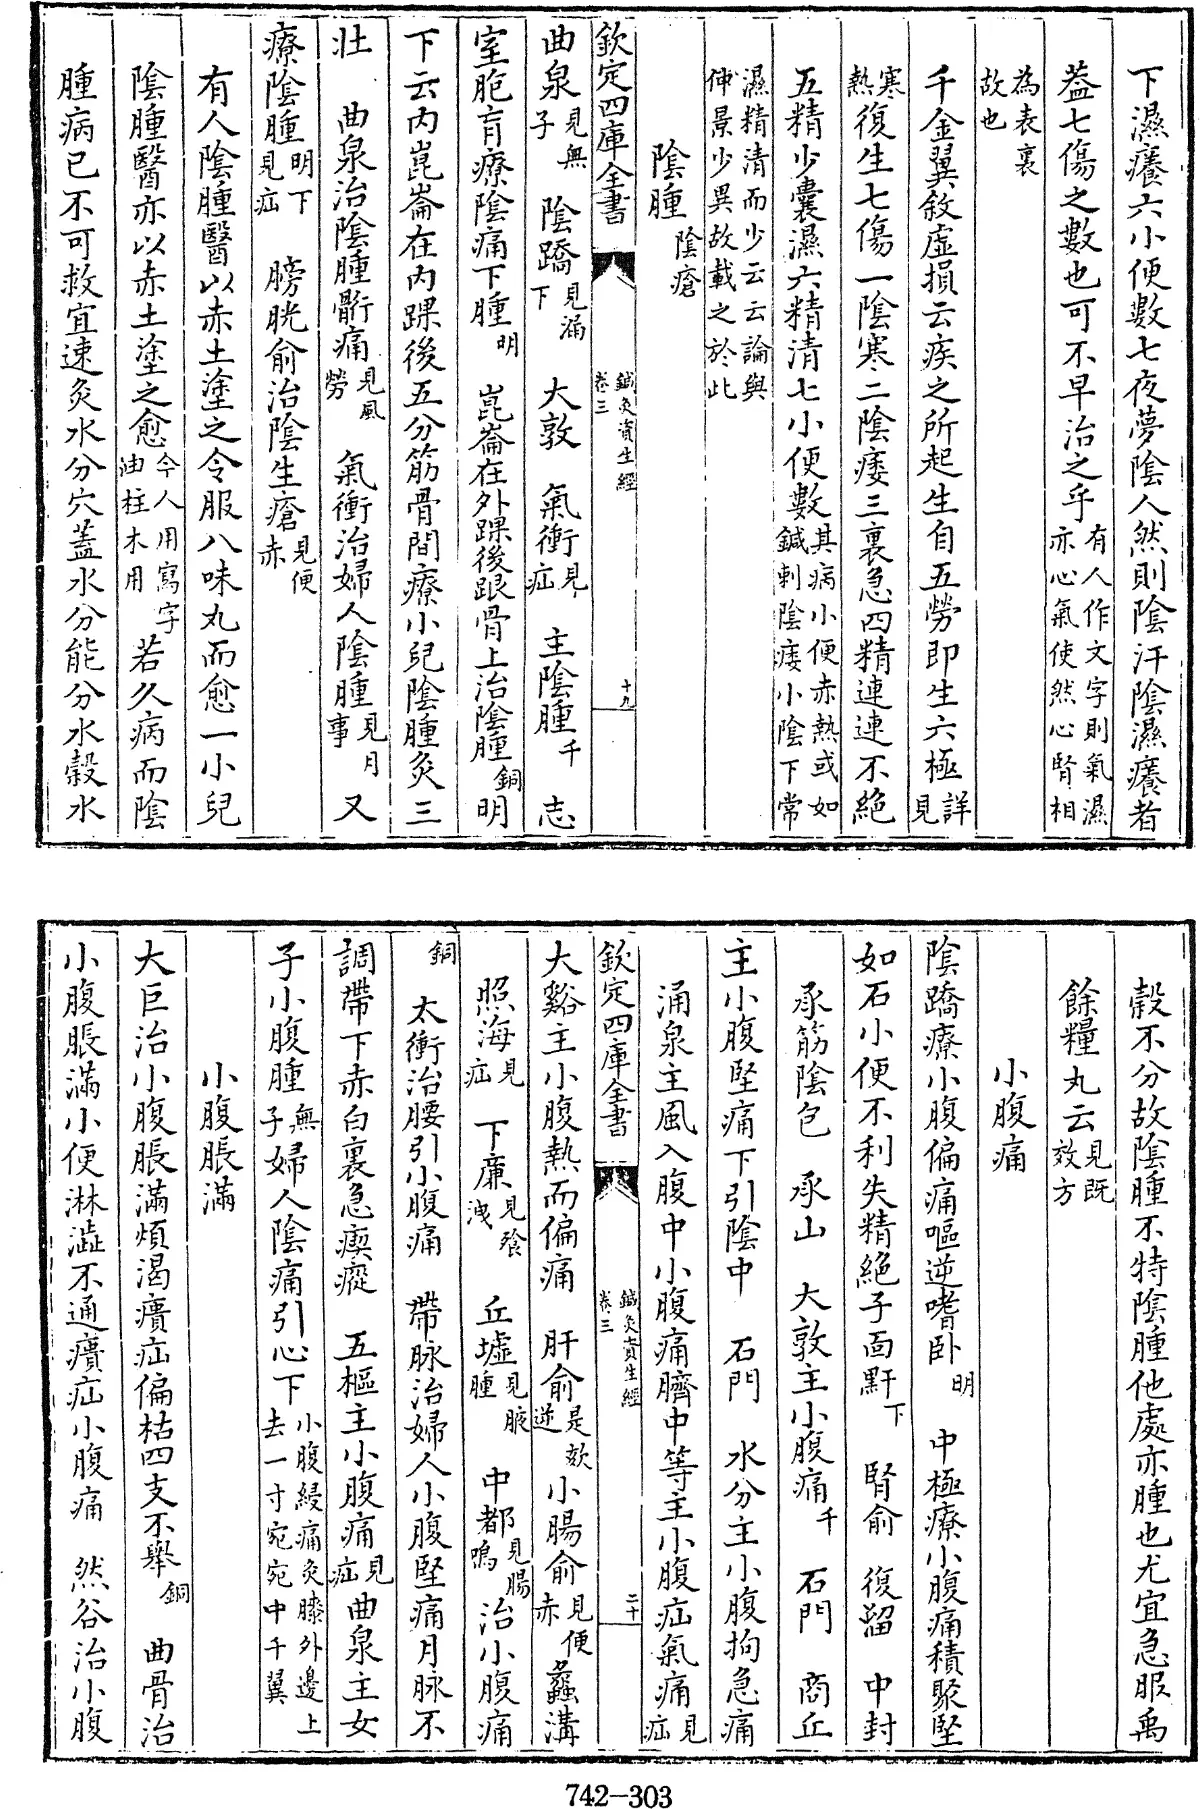 下濕癢六小便數七夜夢陰人然則陰汗陰濕癢者
蓋七傷之數也可不早治之乎有人作文字則氣濕亦心氣使然心腎相
為表裏故也
千金翼敘虛損云疾之所起生自五勞即生六極詳見
寒熱復生七傷一陰寒二陰痿三裏急四精連連不絕
五精少囊濕六精清七小便數其病小便赤熱或如鍼刺陰痿小陰下常
濕精清而少云云論與仲景少異故載之於此
陰腫陰瘡
欽定四庫全書 鍼灸資生經卷三 十九
曲泉見無子 陰蹻見漏下 大敦 氣衝見疝 主陰腫千 志
室胞肓療陰痛下腫明 崑崙在外踝後跟骨上治陰腫銅明
下云內崑崙在內踝後五分筋骨間療小兒陰腫灸三
壯 曲泉治陰腫䯒痛見風勞 氣衝治婦人陰腫見月事 又
療陰腫明下見疝 膀胱俞治陰生瘡見便赤
有人陰腫醫以赤土塗之令服八味丸而愈一小兒
陰腫醫亦以赤土塗之愈今人用寫字油柱木用 若久病而陰
腫病已不可救宜速灸水分穴蓋水分能分水穀水
穀不分故陰腫不特陰腫他處亦腫也尤宜急服禹
餘糧丸云見既效方
小腹痛
陰蹻療小腹偏痛嘔逆嗜卧明 中極療小腹痛積聚堅
如石小便不利失精絕子面䵟下 腎俞 復溜 中封
承筋陰包 承山 大敦主小腹痛千 石門 商丘
主小腹堅痛下引陰中 石門 水分主小腹拘急痛
涌泉主風入腹中小腹痛臍中等主小腹疝氣痛見疝
欽定四庫全書 鍼灸資生經卷三 二十
大谿主小腹熱而偏痛 肝俞是欬逆 小腸俞見便赤 蠡溝
照海見疝 下廉見飱洩 丘墟見腋腫 中都見腸鳴 治小腹痛
銅 太衝治腰引小腹痛 帶脉治婦人小腹堅痛月脉不
調帶下赤白裏急瘈瘲 五樞主小腹痛見疝 曲泉主女
子小腹腫無子 婦人陰痛引心下小腹緩痛灸膝外邊上去一寸宛宛中千翼
小腹脹滿
大巨治小腹脹滿煩渴㿉疝偏枯四支不舉銅 曲骨治
小腹脹滿小便淋澁不通㿉疝小腹痛 然谷治小腹
742-303